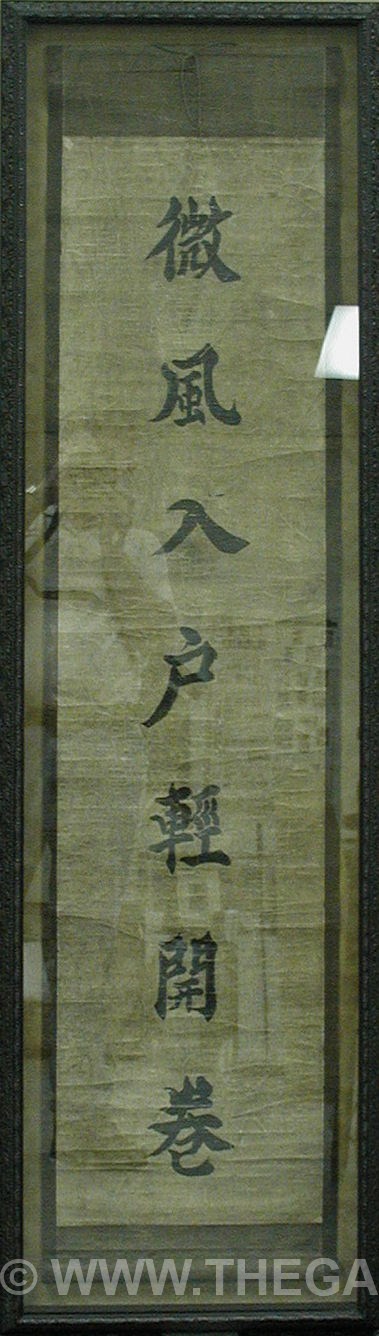 微風入戶輕開卷
© WWW.THEGA